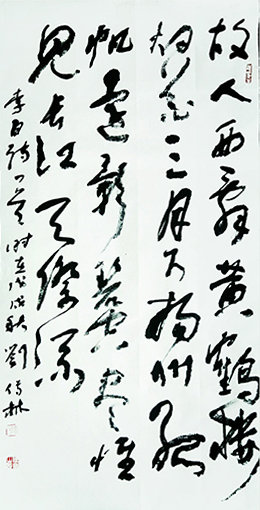 故人西辭黄鶴樓
烟花三月下揚州孤
帆遠影碧空盡惟
見長江天際流
李白詩一首时在戊戌秋劉传林